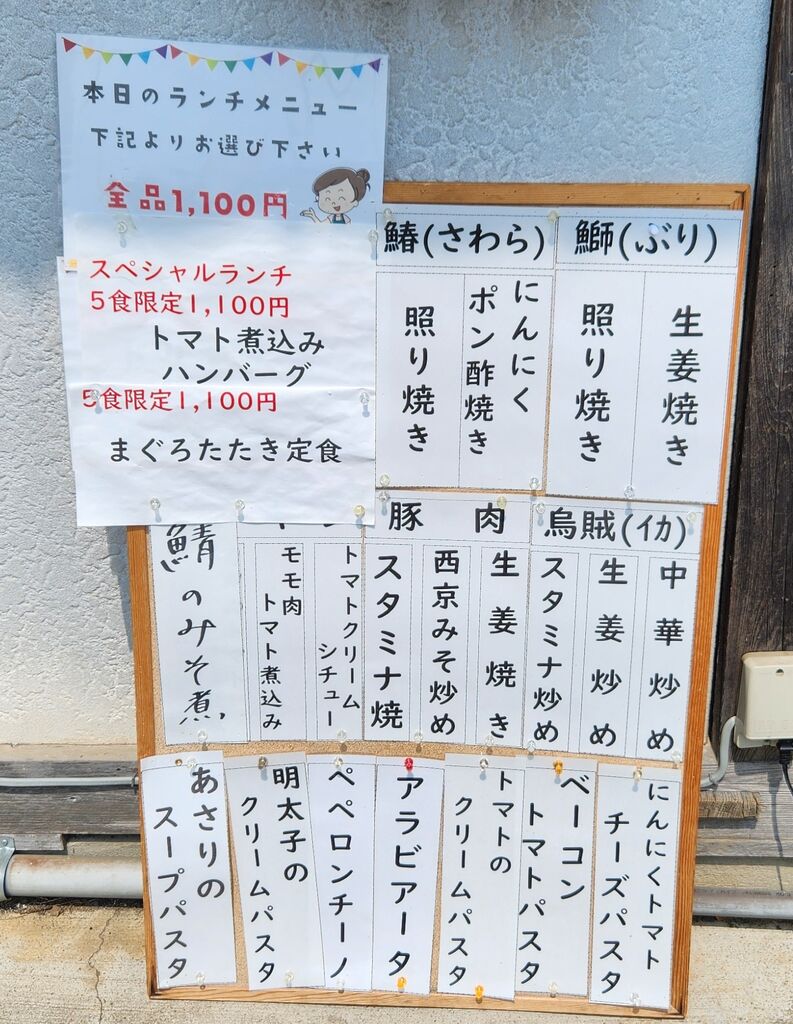 本日のランチメニュー
下記よりお選び下さい
全品1,100円
スペシャルランチ
5食限定1,100円
トマト煮込み
ハンバーグ
5食限定1,100円
まぐろたたき定食
鰆(さわら)
にんにく
ポン酢焼き
照り焼き
鰤(ぶり)
生姜焼き
照り焼き
烏賊(イカ)
中華炒め
生姜炒め
スタミナ炒め
豚肉
生姜焼き
西京みそ炒め
スタミナ焼
トマトクリーム
シチュー
モモ肉
トマト煮込み
鯖のみそ煮
にんにくトマト
チーズパスタ
ベーコン
トマトパスタ
トマトの
クリームパスタ
アラビアータ
ペペロンチーノ
明太子の
クリームパスタ
あさりの
スープパスタ